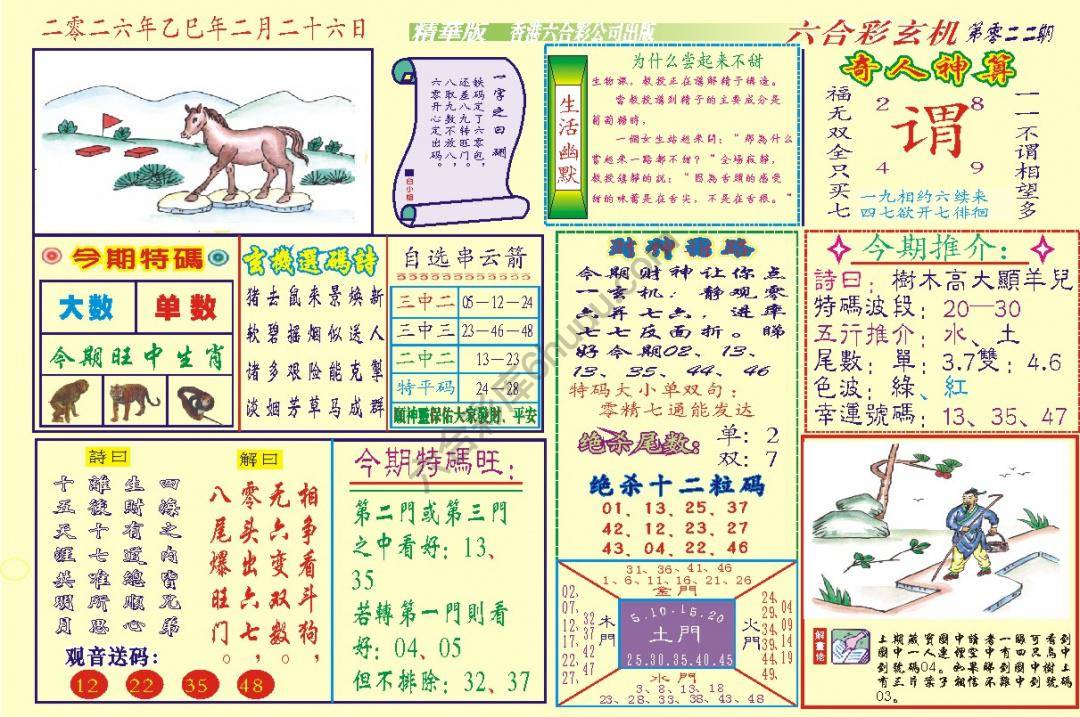 二零二六年乙巳年二月二十六日
精華版 香港六合彩公司出版
六合彩玄机 第零二二期
一字之曰:剻
铁码定了六零包,
还差八九转旺门。
八取九数不放八,
六零开心定出码。
白小姐
生活幽默
为什么尝起来不甜
生物课,教授正在讲解精子构造。
當教授講到精子的主要成分是
葡萄糖時,
一個女生站起来問:"那為什么
嘗起来一路都不甜?"全場寂靜,
教授镇静的説:"因為舌頭的感受
甜的味蕾是在舌尖,不是在舌根。"
奇人神算
福无双全只买七
2 8
谓
4 9
一一不谓相望多
一九相约六续来
四七欲开七徘徊
今期特碼
大数 单数
今期旺中生肖
玄機選碼詩
猪去鼠来景焕新
软碧摇烟似送人
诸多艰险能克掣
淡烟芳草马成群
自选串云箭
三中二 05—12—24
三中三 23—46—48
二中二 13—23
特平码 24—28
願神靈保佑大家發財、平安
财神指路
今期财神让你点
一玄机:静观零
六开七六,进率
七七反面折。睇
好今期02、13、
13、35、44、46
特码大小单双句:
零精七通能发达
绝杀尾数: 单:2
双:7
绝杀十二粒码
01、13、25、37
42、12、23、27
43、04、22、46
今期推介:
詩曰:樹木高大顯羊兒
特碼波段:20—30
五行推介:水、土
尾數:單:3.7雙:4.6
色波:綠、紅
幸運號碼:13、35、47
詩曰
四海之内皆兄弟
生財有道總順心
離後十七准所思
十五天涯共明月
解曰
相争看斗狗,
无六变双数,
零头出六七。
八尾爆旺门。
观音送码:
12 22 35 48
今期特碼旺:
第二門或第三門
之中看好:13、
35
若轉第一門則看
好:04、05
但不排除:32、37
31、36、41、46
1、6、11、16、21、26
金門
02、07、12、17、22、27
32、37、42、47
木門
5.10.15.20
土門
25.30.35.40.45
火門
24、29、34、39、44、49
04、09、14、19
水門
3、8、13、18
23、28、33、38、43、48
解畫佬
上期藏寶圖中請者一睇可看到
圖中一人連浬空中有四只鳥中
到號碼04。如果睇到圖中樹上
有三片葉子相信不難中到號碼
03。